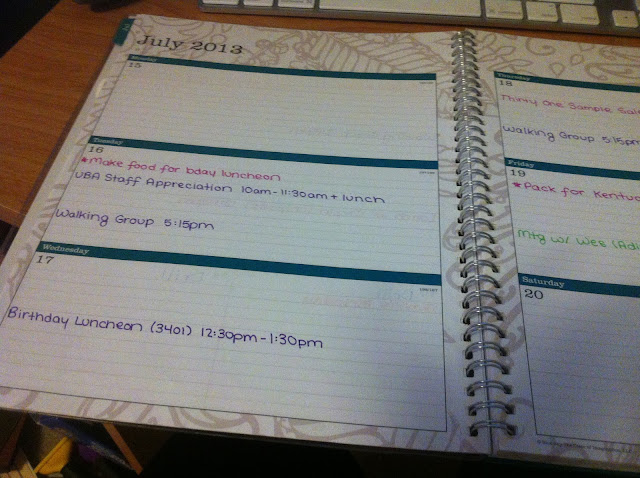 July 2013
Monday
15
Tuesday
16
*Make food for bday luncheon
UBA Staff Appreciation 10am-11:30am + lunch
Walking Group 5:15pm
Wednesday
17
Birthday Luncheon (3401) 12:30pm-1:30pm
Thursday
18
Thirty One Sample Sale
Walking Group 5:15pm
Friday
19
*Pack for Kentuc
Mtg w/ Wes (Adi
Saturday
20